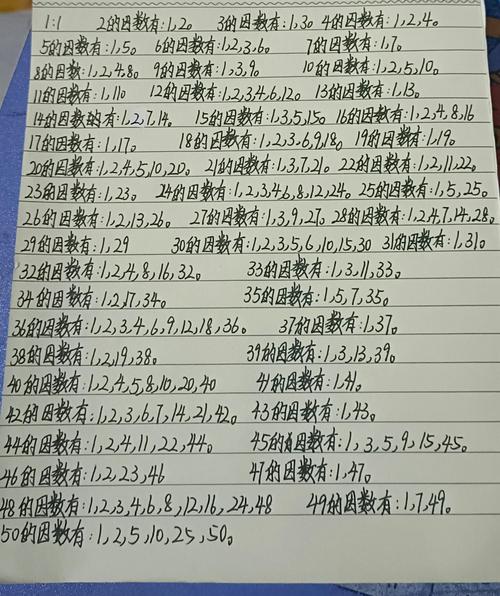 1:1 2的因数有:1,2。 3的因数有:1,3。 4的因数有:1,2,4。
5的因数有:1,5。 6的因数有:1,2,3,6。 7的因数有:1,7。
8的因数:1,2,4,8。 9的因数有:1,3,9。 10的因数有:1,2,5,10。
11的因数有:1,11。 12的因数有:1,2,3,4,6,12。 13的因数有:1,13。
14的因数的有:1,2,7,14。 15的因数有:1,3,5,15。 16的因数有:1,2,4,8,16
17的因数有:1,17。 18的因数有:1,2,3,6,9,18。 19的因数有:1,19。
20的因数有:1,2,4,5,10,20。 21的因数有:1,3,7,21。 22的因数有:1,2,11,22。
23的因数有:1,23。 24的因数有:1,2,3,4,6,8,12,24。 25的因数有:1,5,25。
26的因数有:1,2,13,26。 27的因数有:1,3,9,27。 28的因数有:1,2,4,7,14,28。
29的因数有:1,29 30的因数有:1,2,3,5,6,10,15,30 31的因数有:1,31。
32的因数有:1,2,4,8,16,32。 33的因数有:1,3,11,33。
34的因数有:1,2,17,34。 35的因数有:1,5,7,35。
36的因数有:1,2,3,4,6,9,12,18,36。 37的因数有:1,37。
38的因数有:1,2,19,38。 39的因数有:1,3,13,39。
40的因数有:1,2,4,5,8,10,20,40 41的因数有:1,41。
42的因数有:1,2,3,6,7,14,21,42。 43的因数有:1,43。
44的因数有:1,2,4,11,22,44。 45的因数有:1,3,5,9,15,45。
46的因数有:1,2,23,46 47的因数有:1,47。
48的因数有:1,2,3,4,6,8,12,16,24,48 49的因数有:1,7,49。
50的因数有:1,2,5,10,25,50。